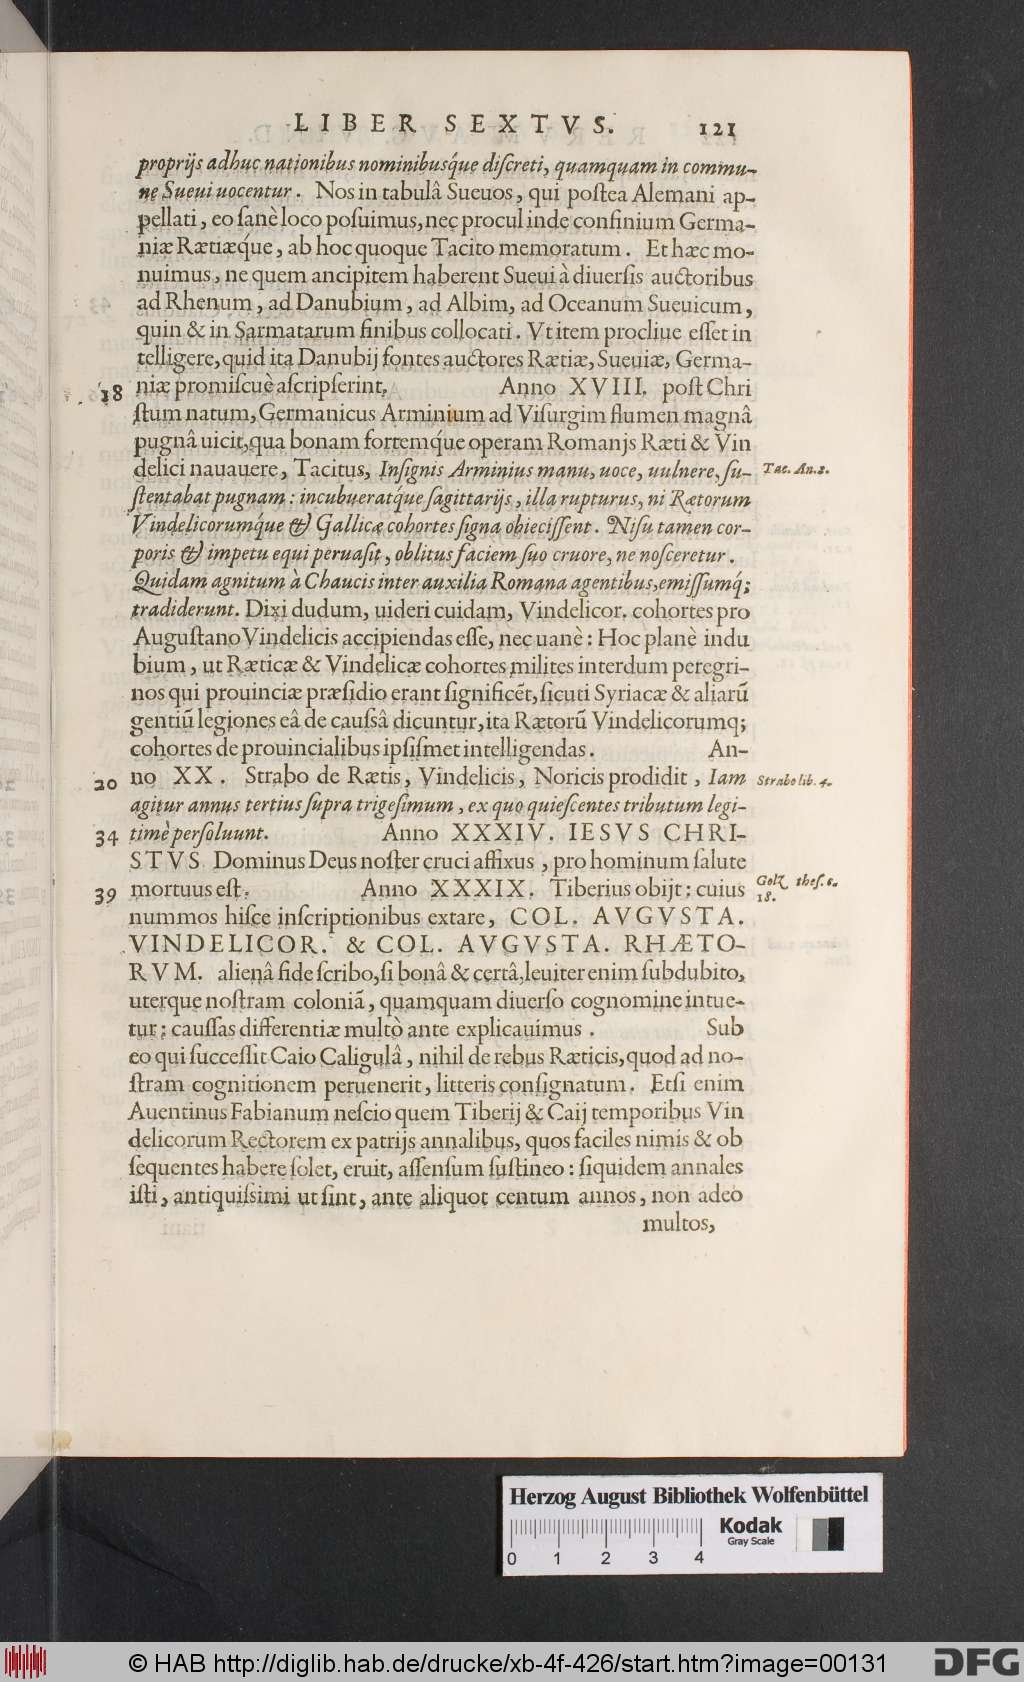 LIBER SEXTVS. 121
proprijs adhuc nationibus nominibusq́ue diſcreti, quamquam in commu-
ne Sueui uocentur. Nos in tabulâ Sueuos, qui poſtea Alemani ap-
pellati, eo ſanè loco poſuimus, nec procul inde confinium Germa-
niæ Rætiæq́ue, ab hoc quoque Tacito memoratum. Et hæc mo-
nuimus, ne quem ancipitem haberent Sueui à diuerſis auctoribus
ad Rhenum, ad Danubium, ad Albim, ad Oceanum Sueuicum,
quin & in Sarmatarum finibus collocati. Vt item procliue eſſet in
telligere, quid ita Danubij fontes auctores Rætiæ, Sueuiæ, Germa-
18 niæ promiſcuè aſcripſerint. Anno XVIII. poſt Chri
ſtum natum, Germanicus Arminium ad Viſurgim flumen magnâ
pugnâ uicit, qua bonam fortemq́ue operam Romanis Ræti & Vin
delici nauauere, Tacitus, Inſignis Arminius manu, uoce, uulnere, ſu- Tac. An. 2.
ſtentabat pugnam: incubueratq́ue ſagittarijs, illa rupturus, ni Rætorum
Vindelicorumq́ue & Gallicæ cohortes ſigna obieciſſent. Niſu tamen cor-
poris & impetu equi peruaſit, oblitus faciem ſuo cruore, ne noſceretur.
Quidam agnitum à Chaucis inter auxilia Romana agentibus, emiſſumq́;
tradiderunt. Dixi dudum, uideri cuidam, Vindelicor. cohortes pro
Auguſtano Vindelicis accipiendas eſſe, nec uanè: Hoc planè indu
bium, ut Ræticæ & Vindelicæ cohortes milites interdum peregri-
nos qui prouinciæ præſidio erant ſignificẽt, ſicuti Syriacæ & aliarũ
gentiũ legiones eâ de cauſsâ dicuntur, ita Rætorũ Vindelicorumq;
cohortes de prouincialibus ipſiſmet intelligendas. An-
20 no XX. Strabo de Rætis, Vindelicis, Noricis prodidit, Iam Strabo lib. 4.
agitur annus tertius ſupra trigeſimum, ex quo quieſcentes tributum legi-
34 timè perſoluunt. Anno XXXIV. IESVS CHRI-
STVS Dominus Deus noſter cruci affixus, pro hominum ſalute
39 mortuus eſt. Anno XXXIX. Tiberius obijt: cuius Golz theſ. 6.
18.
nummos hiſce inſcriptionibus extare, COL. AVGVSTA.
VINDELICOR. & COL. AVGVSTA. RHÆTO-
RVM. alienâ fide ſcribo, ſi bonâ & certâ, leuiter enim ſubdubito,
uterque noſtram coloniã, quamquam diuerſo cognomine intue-
tur: cauſſas differentiæ multò ante explicauimus. Sub
eo qui ſucceſſit Caio Caligulâ, nihil de rebus Ræticis, quod ad no-
ſtram cognitionem peruenerit, litteris conſignatum. Etſi enim
Auentinus Fabianum neſcio quem Tiberij & Caij temporibus Vin
delicorum Rectorem ex patrijs annalibus, quos faciles nimis & ob
ſequentes habere ſolet, eruit, aſſenſum ſuſtineo: ſiquidem annales
iſti, antiquiſsimi ut ſint, ante aliquot centum annos, non adeo
multos,
Herzog August Bibliothek Wolfenbüttel
Kodak
Gray Scale
0 1 2 3 4
© HAB http://diglib.hab.de/drucke/xb-4f-426/start.htm?image=00131
DFG